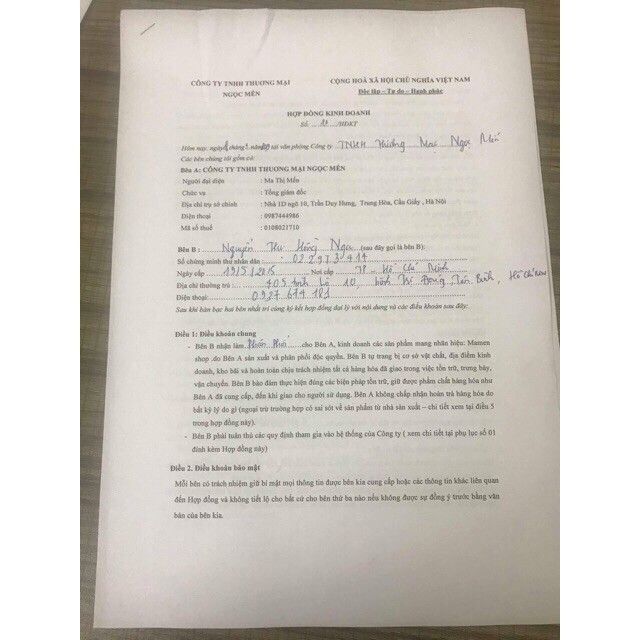 CÔNG TY TNHH THƯƠNG MẠI
NGỌC MẾN
CỘNG HOÀ XÃ HỘI CHỦ NGHĨA VIỆT NAM
Độc lập – Tự do – Hạnh phúc
HỢP ĐỒNG KINH DOANH
Số: /HĐKT
Hôm nay, ngày tháng năm tại văn phòng Công ty TNHH Thương Mại Ngọc Mến
Các bên chúng tôi gồm có:
Bên A: CÔNG TY TNHH THƯƠNG MẠI NGỌC MẾN
Người đại diện : Ma Thị Mến
Chức vụ : Tổng giám đốc
Địa chỉ trụ sở chính : Nhà 1D ngõ 10, Trần Duy Hưng, Trung Hòa, Cầu Giấy, Hà Nội
Điện thoại : 0987444986
Mã số thuế : 0108021710
Bên B : Nguyễn Thu Hồng Nga (sau đây gọi là bên B):
Số chứng minh thư nhân dân :
Ngày cấp 19/5/2015 Nơi cấp TP - Hồ Chí Minh
Địa chỉ thường trú : 405 tỉnh lộ 10, Bình Trị Đông, Tân Bình, Hồ Chí Minh
Điện thoại:
Sau khi bàn bạc hai bên nhất trí cùng ký kết hợp đồng đại lý với nội dung và các điều khoản sau đây:
Điều 1: Điều khoản chung
- Bên B nhận làm Phân Phối cho Bên A, kinh doanh các sản phẩm mang nhãn hiệu: Mamen
shop .do Bên A sản xuất và phân phối độc quyền. Bên B tự trang bị cơ sở vật chất, địa điểm kinh
doanh, kho bãi và hoàn toàn chịu trách nhiệm tất cả hàng hóa đã giao trong việc tồn trữ, trưng bày,
vận chuyển. Bên B bảo đảm thực hiện đúng các biện pháp tồn trữ, giữ được phẩm chất hàng hóa như
Bên A đã cung cấp, đến khi giao cho người sử dụng. Bên A không chấp nhận hoàn trả hàng hóa do
bất kỳ lý do gì (ngoại trừ trường hợp có sai sót về sản phẩm từ nhà sản xuất – chi tiết xem tại điều 5
trong hợp đồng này).
- Bên B phải tuân thủ các quy định tham gia vào hệ thống của Công ty ( xem chi tiết tại phụ lục số 01
đính kèm Hợp đồng này)
Điều 2. Điều khoản bảo mật
Mỗi bên có trách nhiệm giữ bí mật mọi thông tin được bên kia cung cấp hoặc các thông tin khác liên quan
đến Hợp đồng và không tiết lộ cho bất cứ cho bên thứ ba nào nếu không được sự đồng ý trước bằng văn
bản của bên kia.